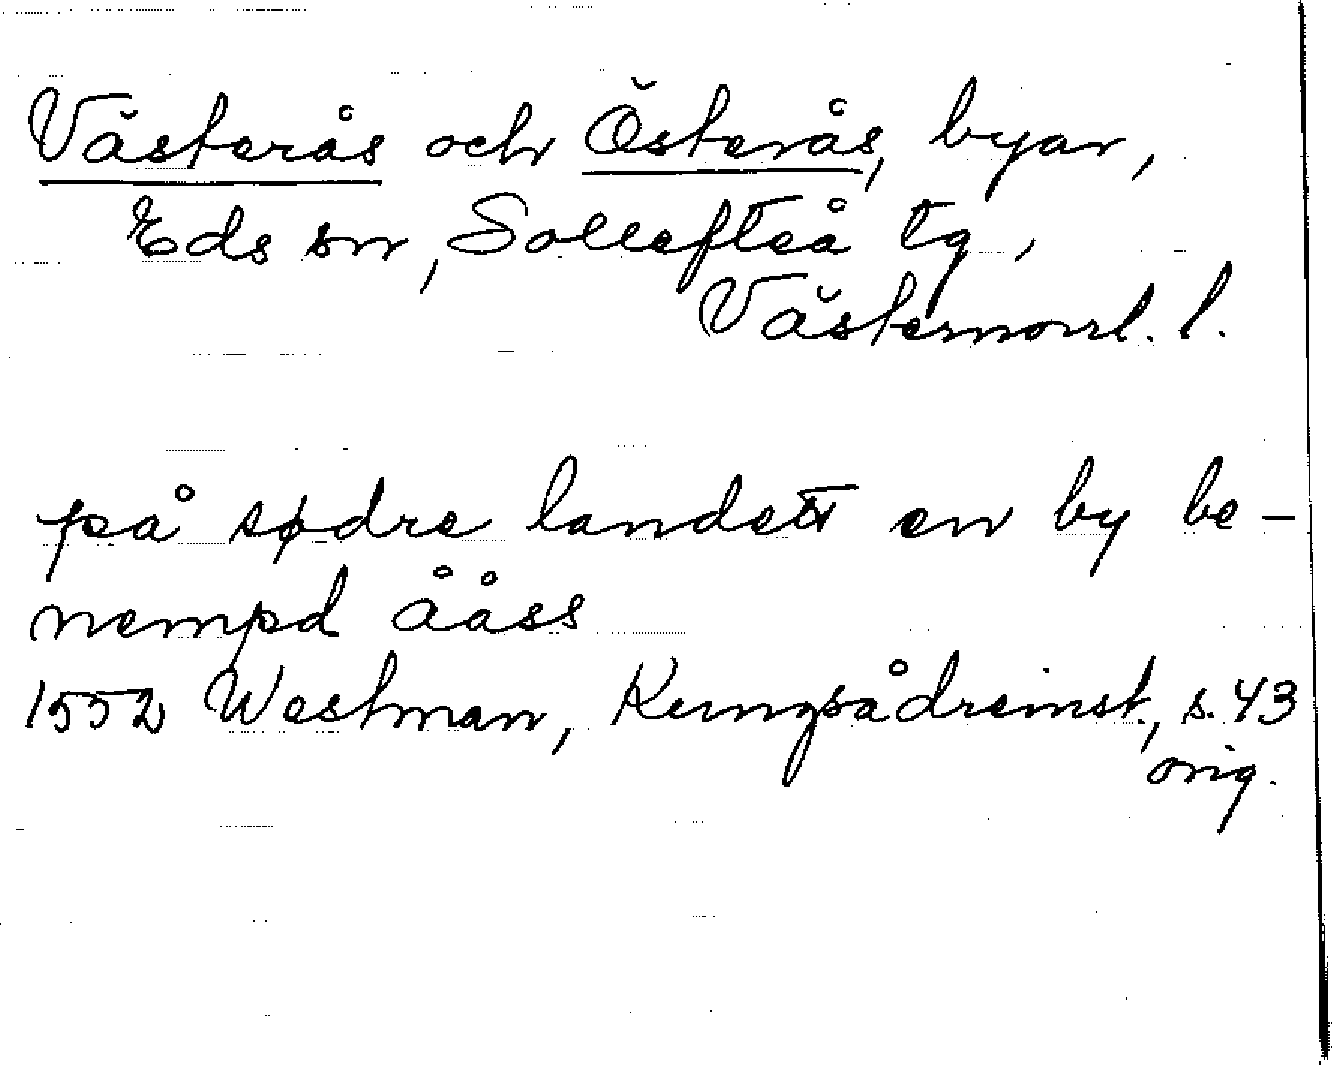 Västerås och Österås, byar,
Eds sn, Sollefteå tg,
Västernorrl. l.
på sødre landett en by be-
nempd ååss
1552 Westman, Kungsådreinst., s. 43
orig.